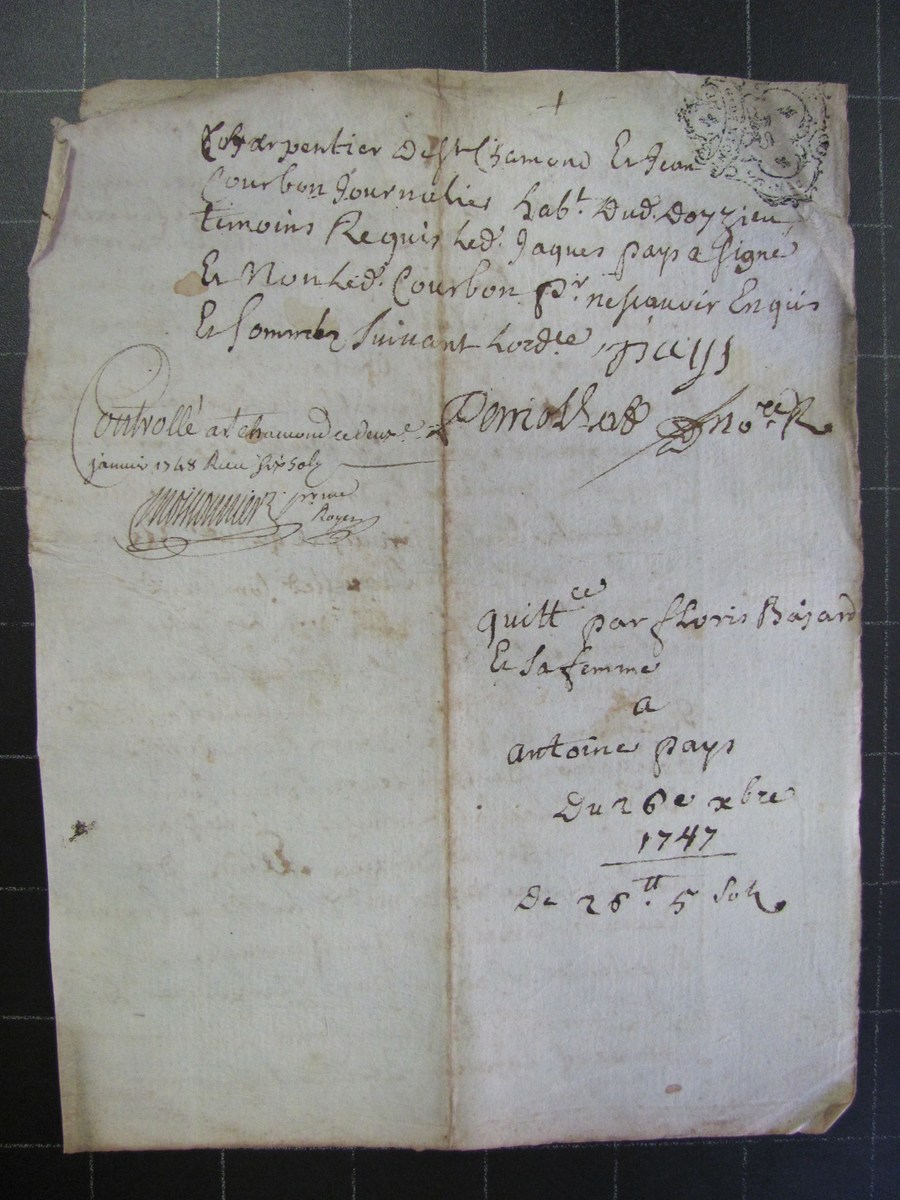 charpentier de st Chamond Et Jean
Courbon Journalier habt. dud. doyzieu
temoins Requis led. Jaques pays a signé
Et Non led. Courbon pr. ne scavoir Enquis
Et sommé suivant lordce pays
nore R
Controllé a st chamond ce deuxe
janvier 1748 Receu six sols
quittce par floris Bajard
Et sa femme
a
antoine pays
du 26e xbre
1747
De 26tt 5 sols